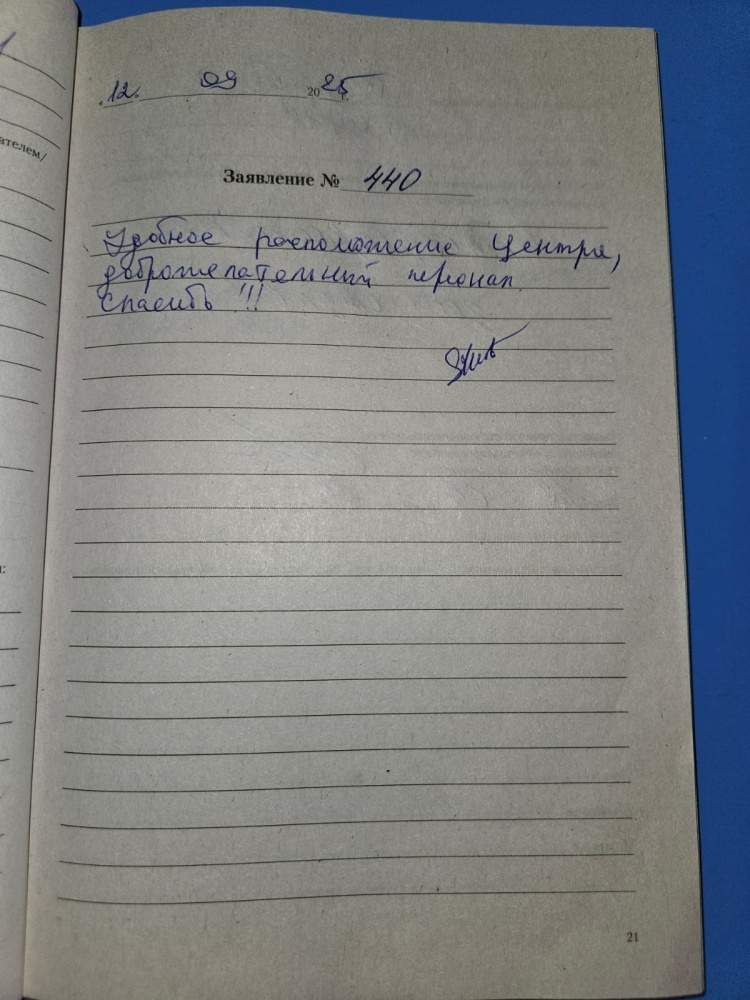 ателем/
12. 09 2025 г.
Заявление № 440
Удобное расположение Центра,
доброжелательный персонал.
Спасибо !!!
21